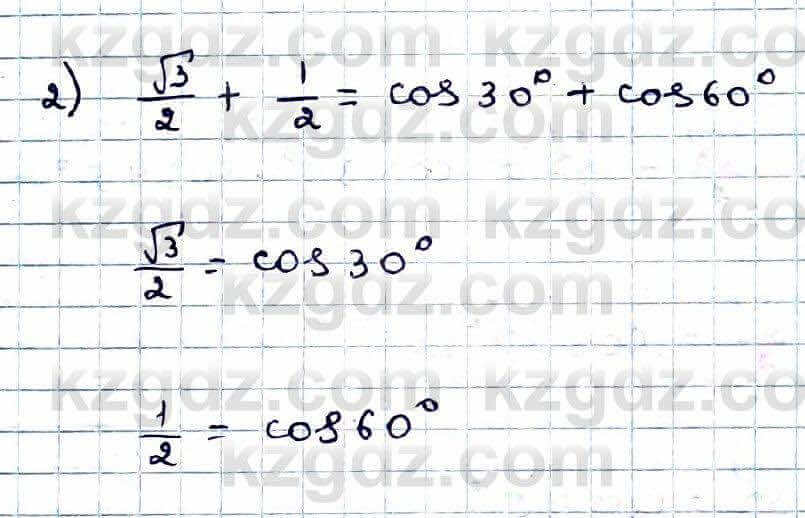 kzgdz.com kzgdz.co
2) √3/2 + 1/2 = cos 30° + cos 60°
kzgdz.com
kzgdz.com kzgdz.co
√3/2 = cos 30°
kzgdz.com
kzgdz.com kzgdz.co
1/2 = cos 60°
kzgdz.com